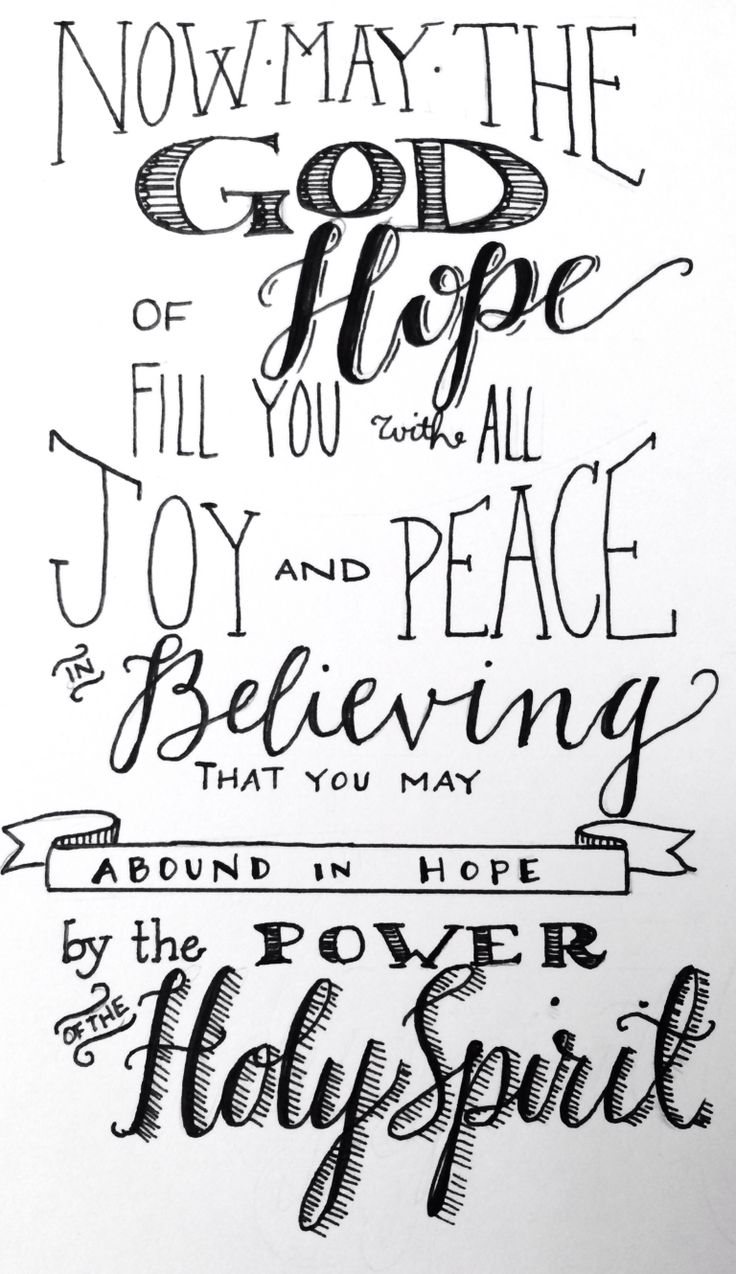 NOW · MAY · THE
GOD
OF Hope
FILL YOU withe ALL
JOY AND PEACE
IN Believing
THAT YOU MAY
ABOUND IN HOPE
by the POWER
OF THE Holy Spirit